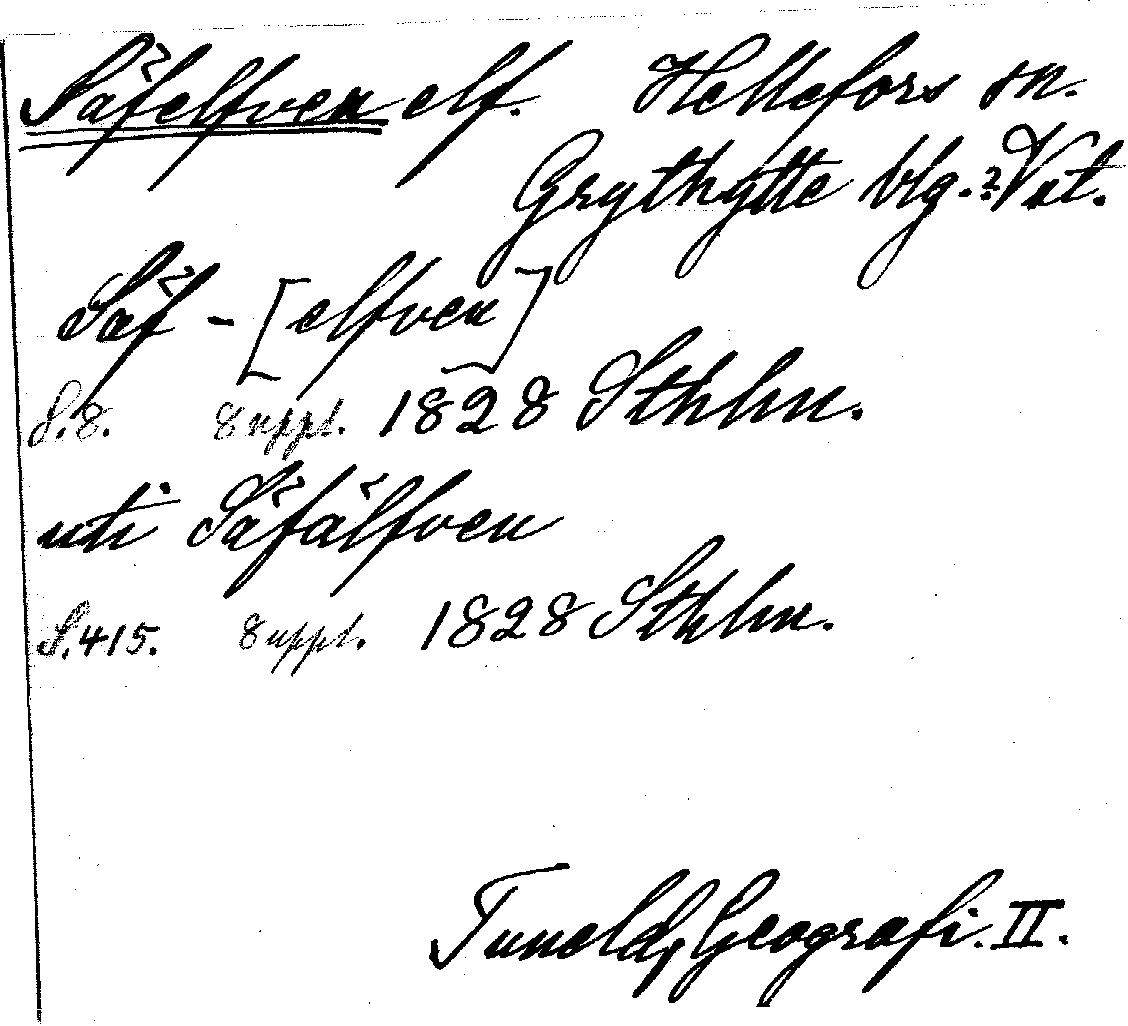 Säfelfven elf. Hellefors sn.
Grythytte blg.? Vst.
Säf - [elfven]
S.8. Suppl. 1828 Sthlm.
uti Säfälfven
S.415. Suppl. 1828 Sthlm.
Tuneld, Geografi. II.